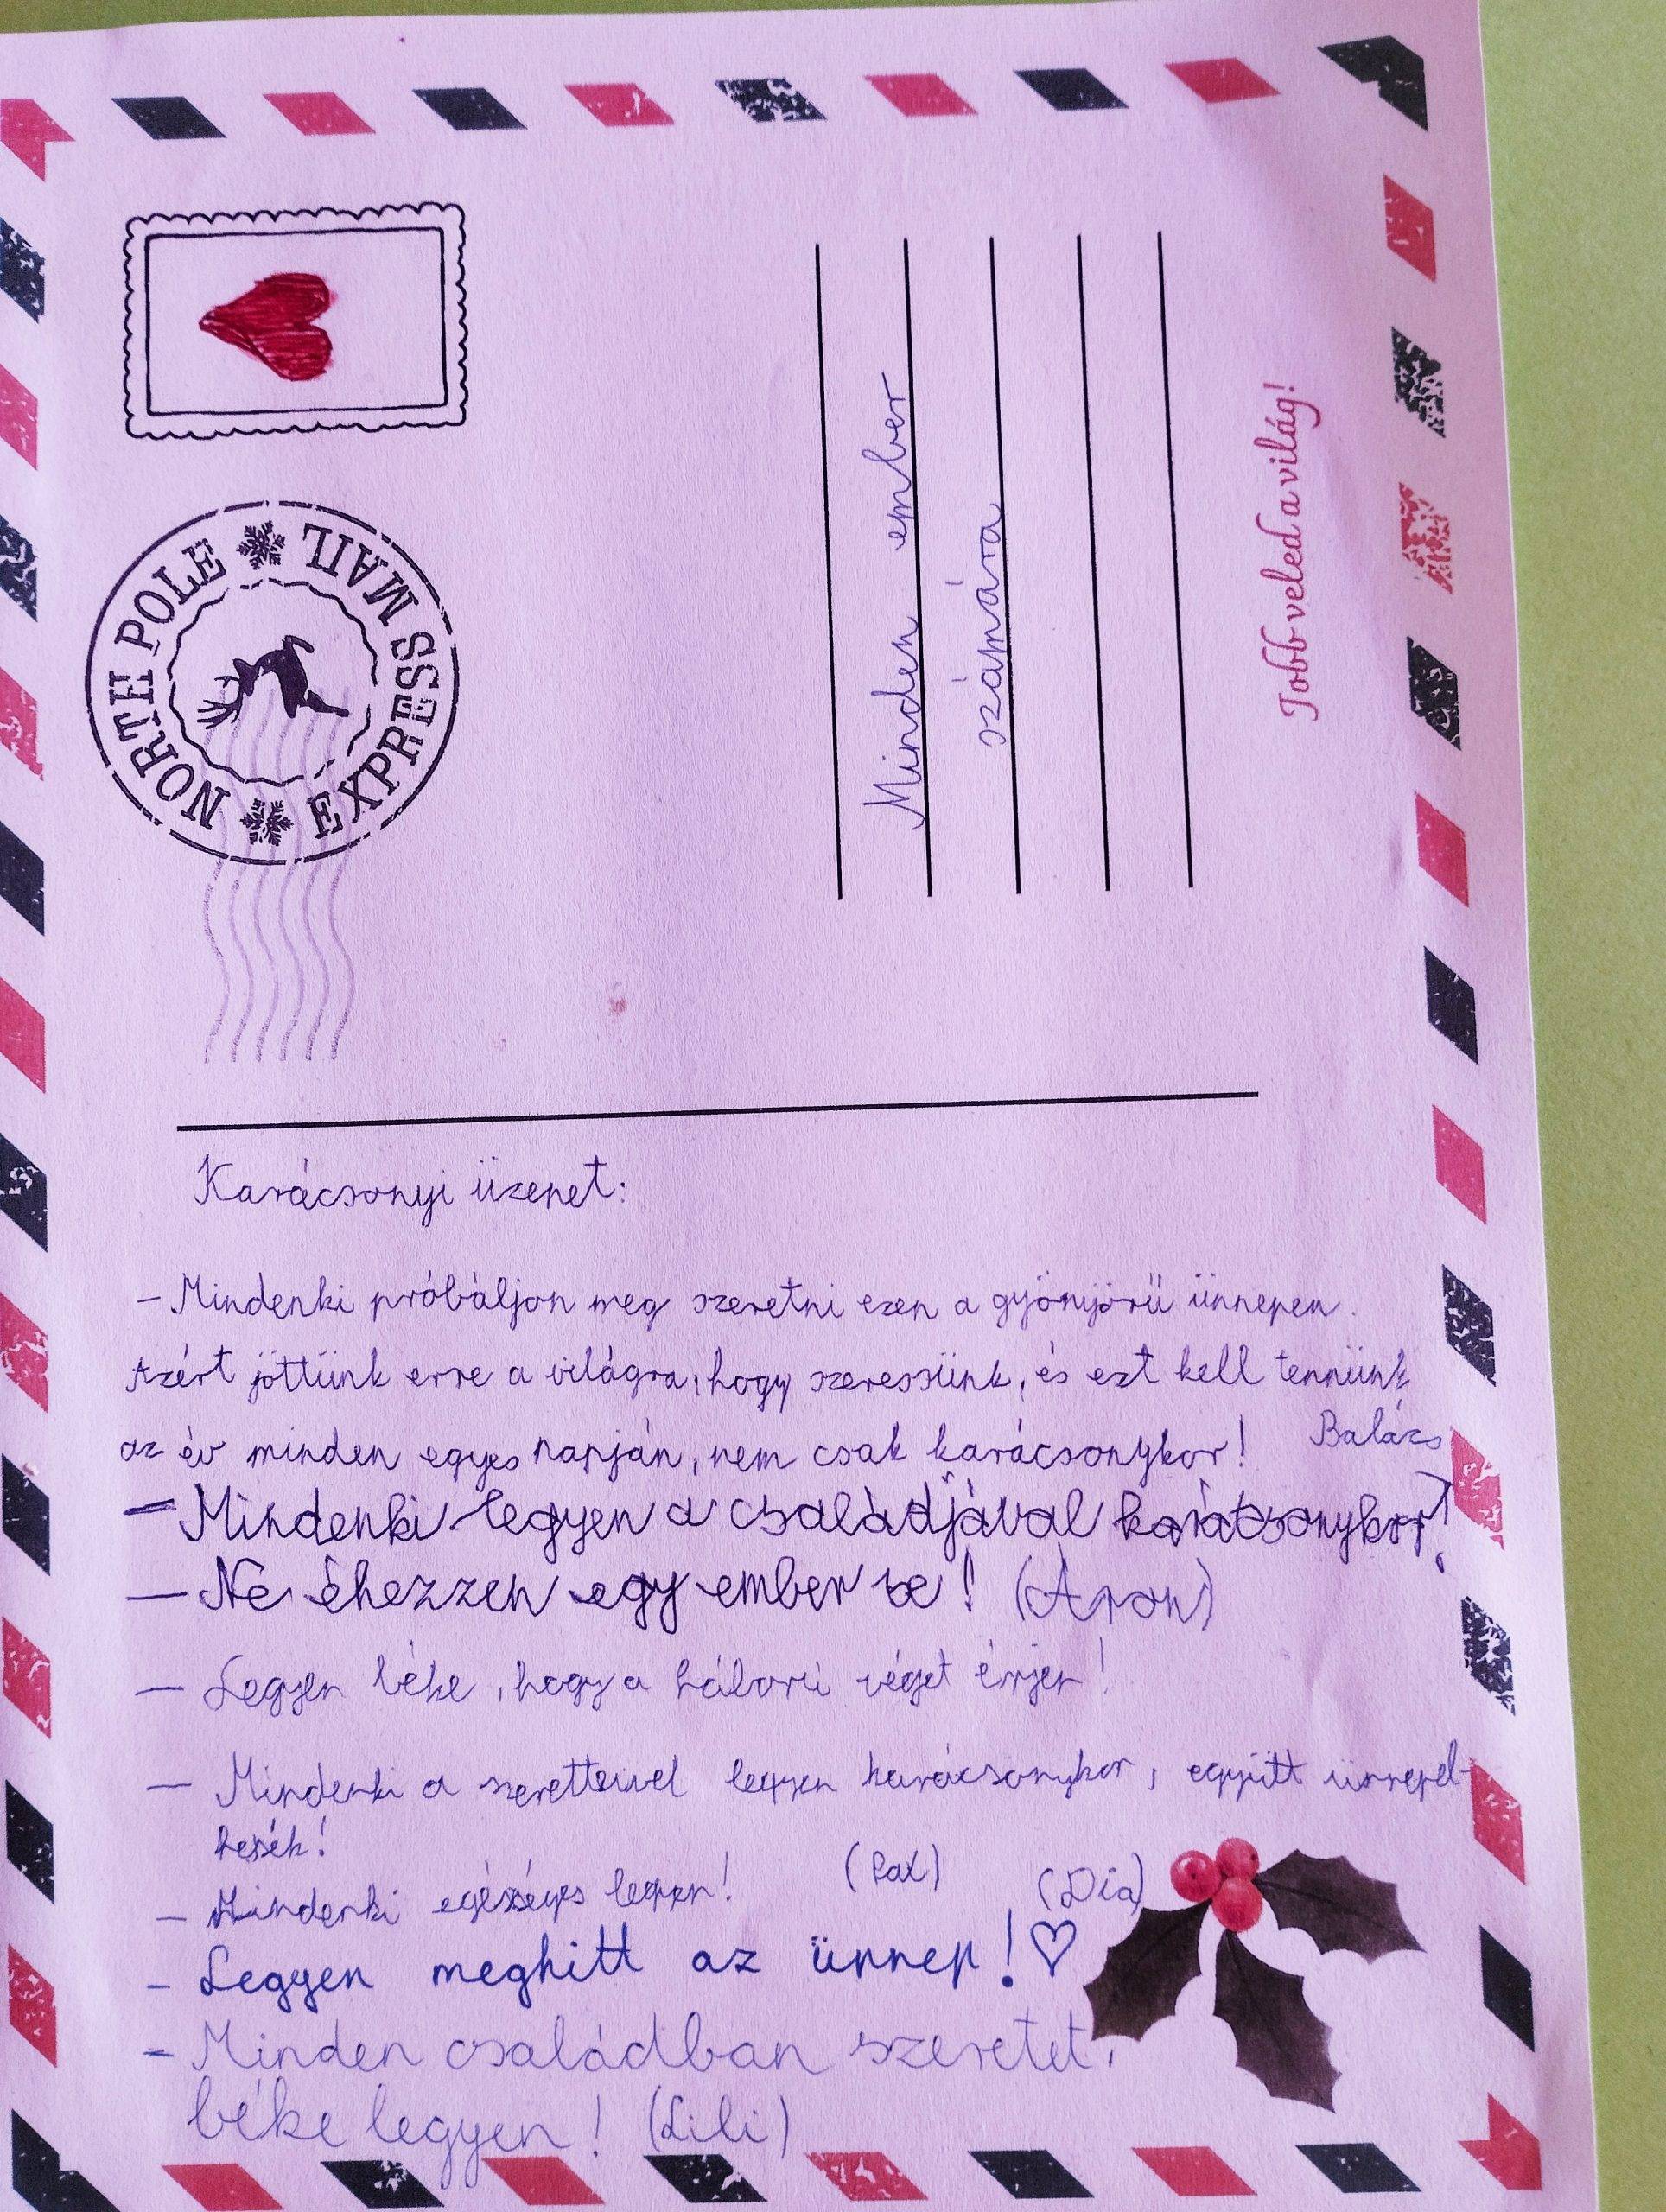 NORTH POLE
EXPRESS MAIL
Minden ember
számára
Jobb veled a világ!
Karácsonyi üzenet:
- Mindenki próbáljon meg szeretni ezen a gyönyörű ünnepen.
Azért jöttünk erre a világra, hogy szeressünk, és ezt kell tennünk
az év minden egyes napján, nem csak karácsonykor! Balázs
- Mindenki legyen a családjával karácsonykor!
- Ne éhezzen egy ember se! (Áron)
- Legyen béke, hogy a háború véget érjen!
- Mindenki a szeretteivel legyen karácsonykor, együtt ünnepel-
hessék!
- Mindenki egészséges legyen! (Dia)
- Legyen meghitt az ünnep! ♡
- Minden családban szeretet,
béke legyen! (Lili)